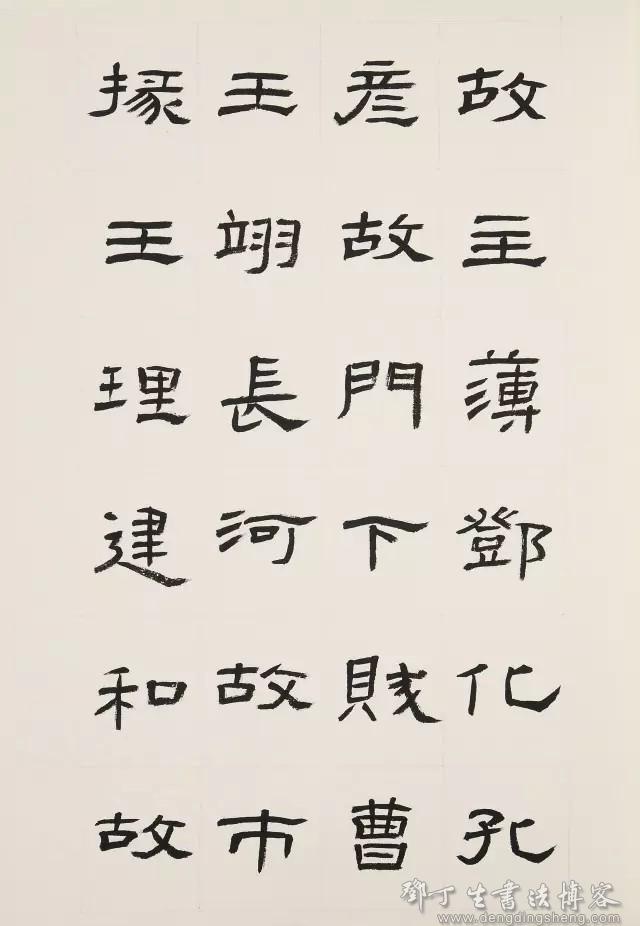 故主薄鄧化孔
彦故門下賊曹
王翊長河故市
掾王理建和故
鄧丁生書法博客
www.dengdingsheng.com